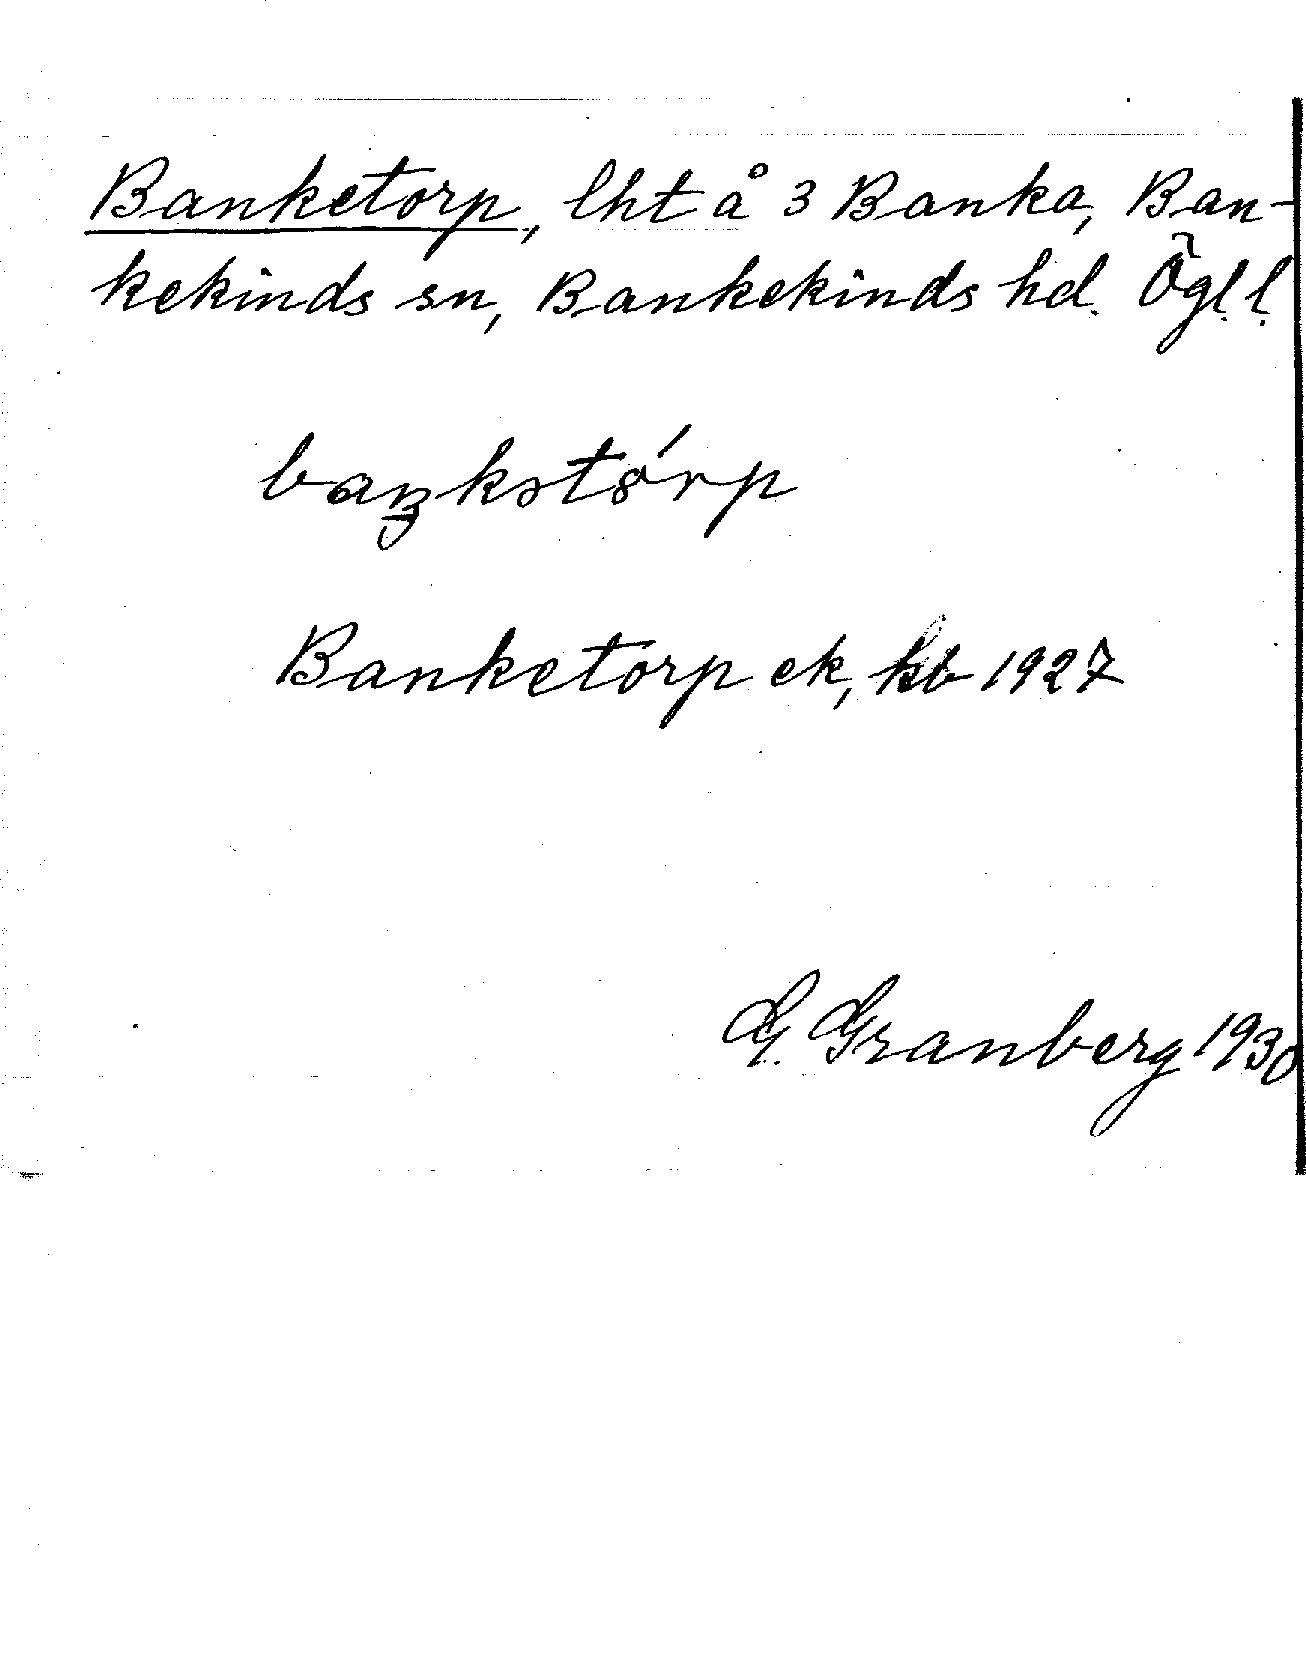 Banketorp, lht å 3 Banka, Ban-
kekinds sn, Bankekinds hd. Ögl. l.
Banketorp ek, kb 1927
G. Granberg 1930